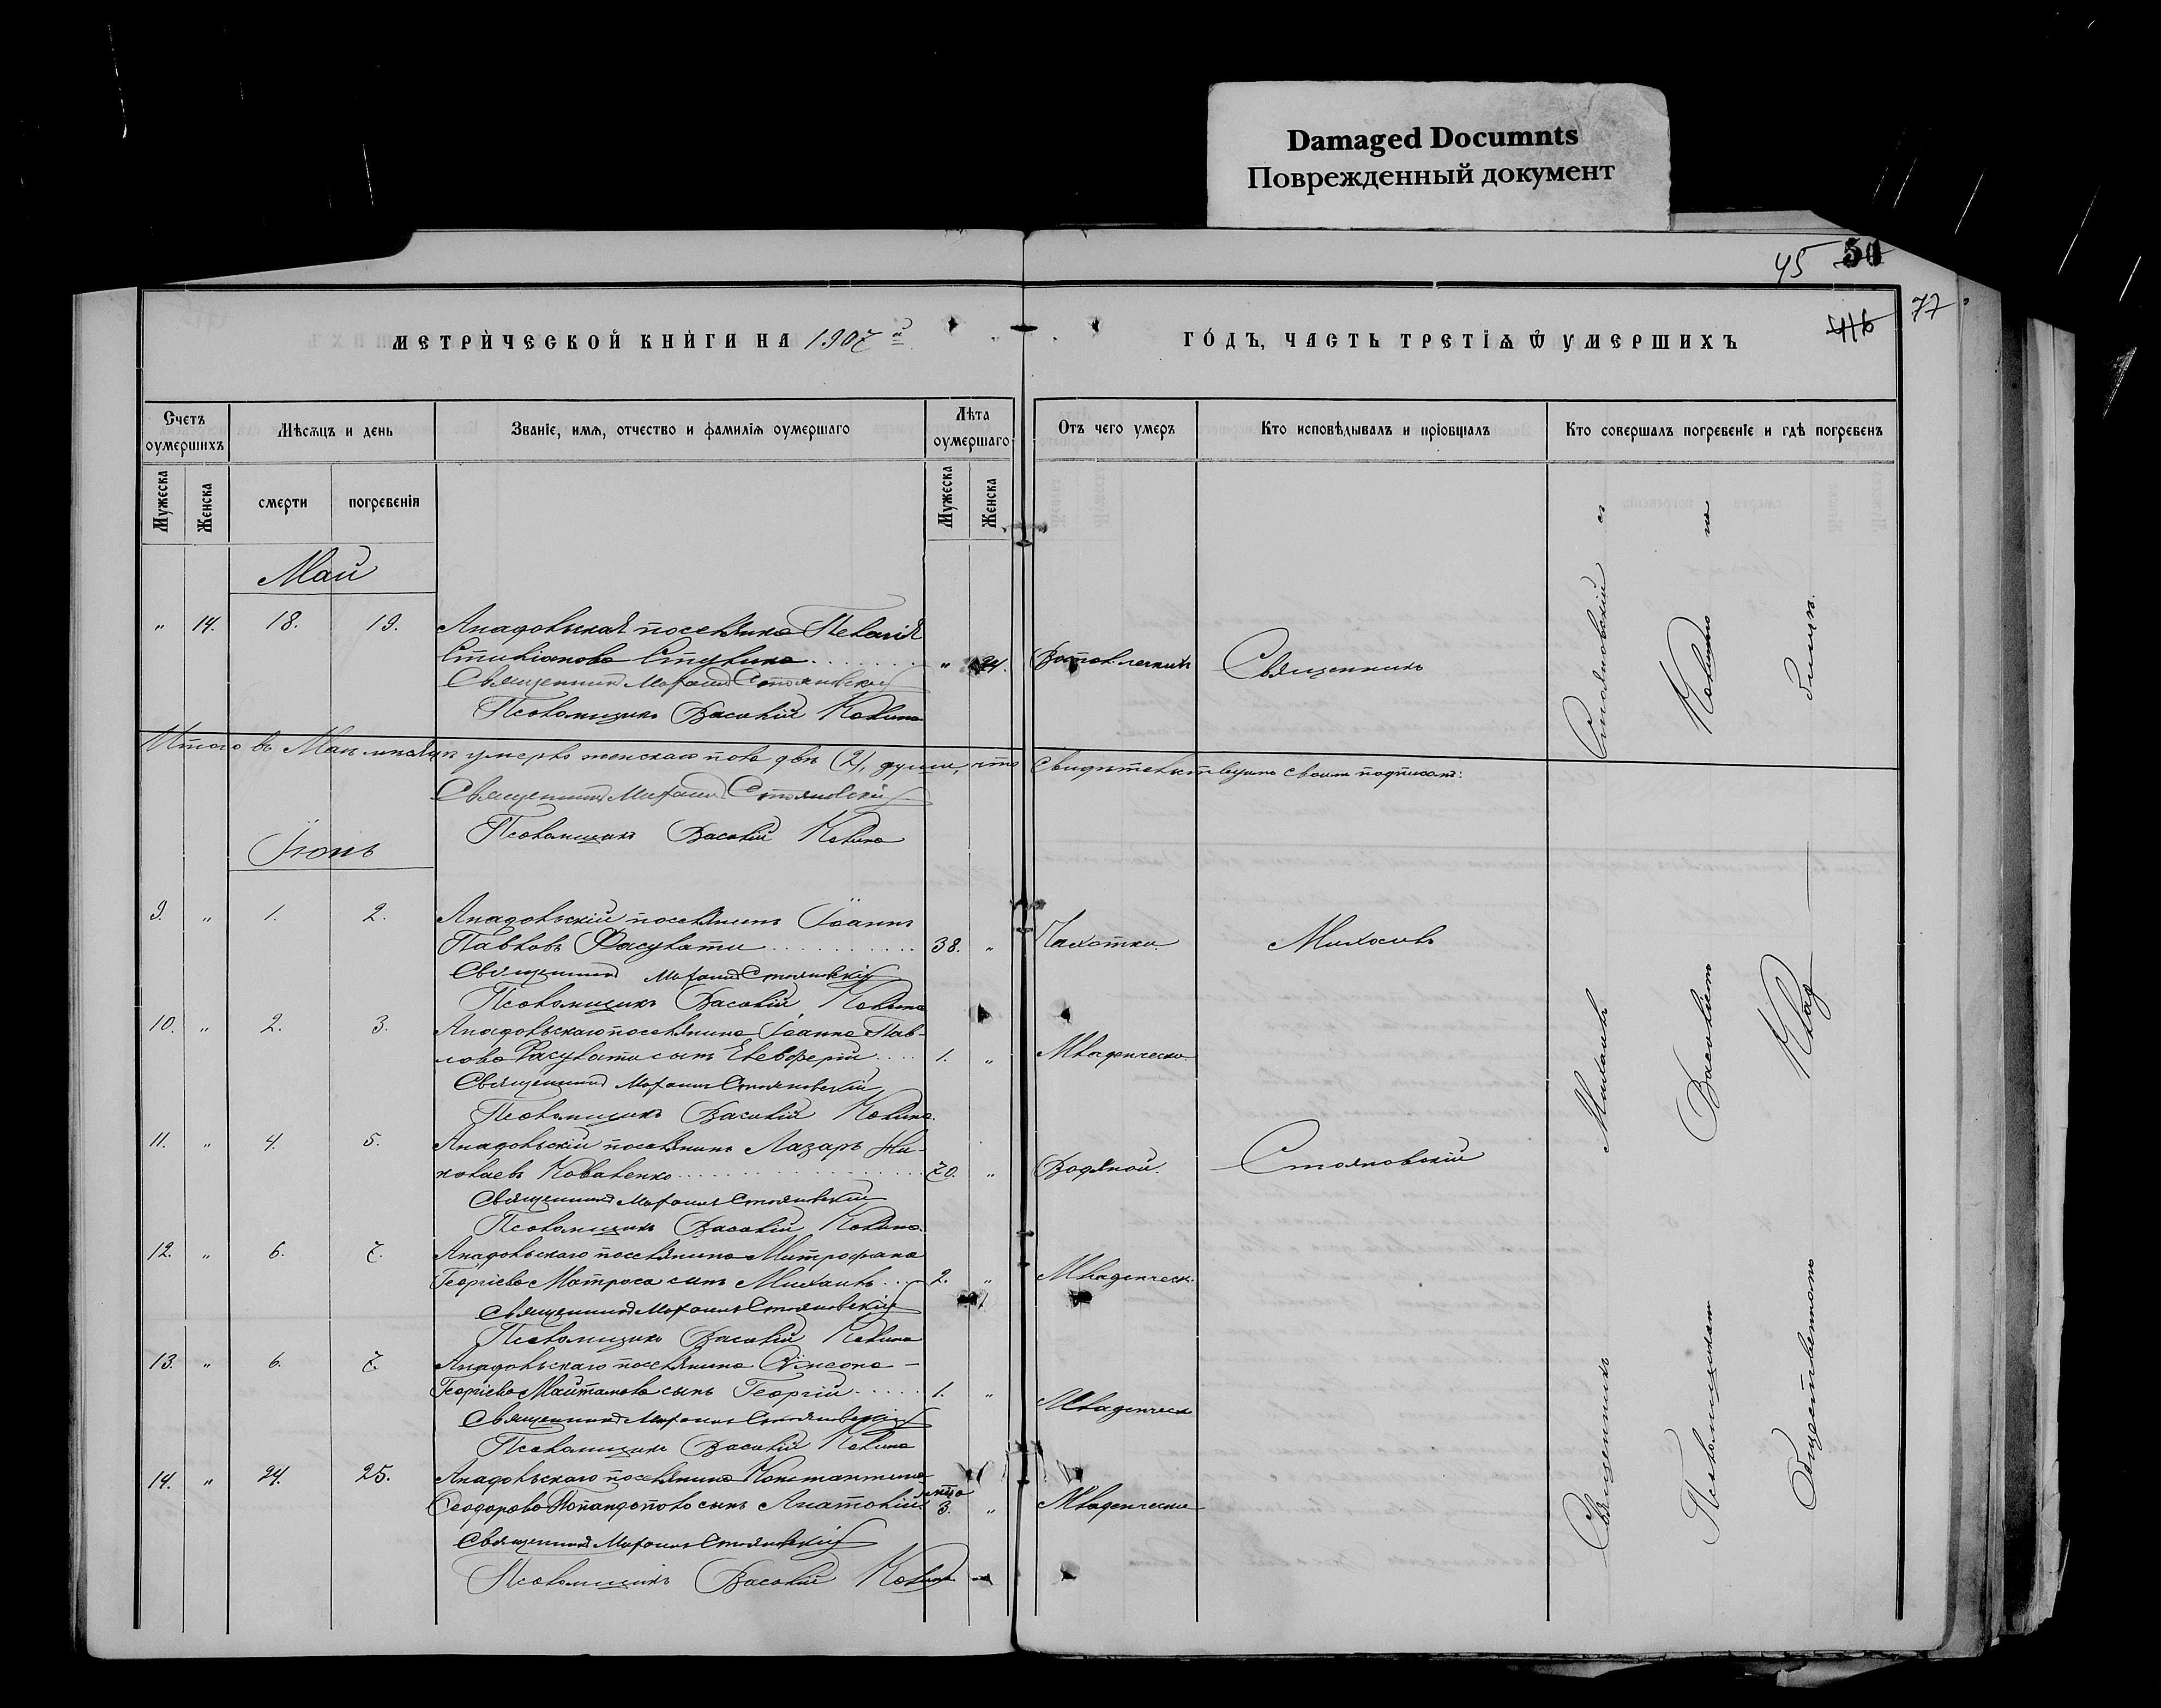 Damaged Documnts
Поврежденный документ
45 50
77
МЕТРИЧЕСКОЙ КНИГИ НА 1907й
ГОДЪ, ЧАСТЬ ТРЕТІЯ Ѿ УМЕРШИХЪ
Счетъ оумершихъ
Мѣсяцъ и день
Званіе, имя, отчество и фамилія оумершаго
Лѣта оумершаго
Отъ чего умеръ
Кто исповѣдывалъ и пріобщалъ
Кто совершалъ погребеніе и гдѣ погребенъ
Мужеска
Женска
смерти
погребенія
Мужеска
Женска
Май
" 14. 18. 19. Анадольская поселянка Пелагія
Священникъ
Священникъ Михаилъ Стояновскій
Псаломщикъ Василій
Итого въ Маѣ мѣсяцѣ умерло женскаго пола двѣ (2) души, что свидѣтельствуемъ своимъ подписомъ:
Священникъ Михаилъ Стояновскій
Псаломщикъ Василій
Іюнь
9. " 1. 2. Анадольскій поселянинъ Іоаннъ
Павловъ Фасулати 38. " Чахотка. Михаилъ
Священникъ Михаилъ Стояновскій
Псаломщикъ Василій
10. " 2. 3. Анадольскаго поселянина Іоанна Пав-
лова Фасулати сынъ Елевферій 1. " Младенческ.
Священникъ Михаилъ Стояновскій
Псаломщикъ Василій
11. " 4. 5. Анадольскій поселянинъ Лазарь Ни-
колаевъ Коваленко 70. " Водяной. Стояновскій
Священникъ Михаилъ Стояновскій
Псаломщикъ Василій
12. " 6. 7. Анадольскаго поселянина Митрофана
Георгіева Матроса сынъ Михаилъ 2. " Младенческ.
Священникъ Михаилъ Стояновскій
Псаломщикъ Василій
13. " 6. 7. Анадольскаго поселянина Сѵмеона
Георгіева Майтанова сынъ Георгій 1. " Младенческ
Священникъ Михаилъ Стояновскій
Псаломщикъ Василій
14. " 24. 25. Анадольскаго поселянина Константина
Ѳеодорова Попандопова сынъ Анатолій 3. " Младенческ
Священникъ Михаилъ Стояновскій
Псаломщикъ Василій
Священникъ Михаилъ Стояновскій съ
Псаломщикомъ Василіемъ на
Общественномъ Клад бищѣ.